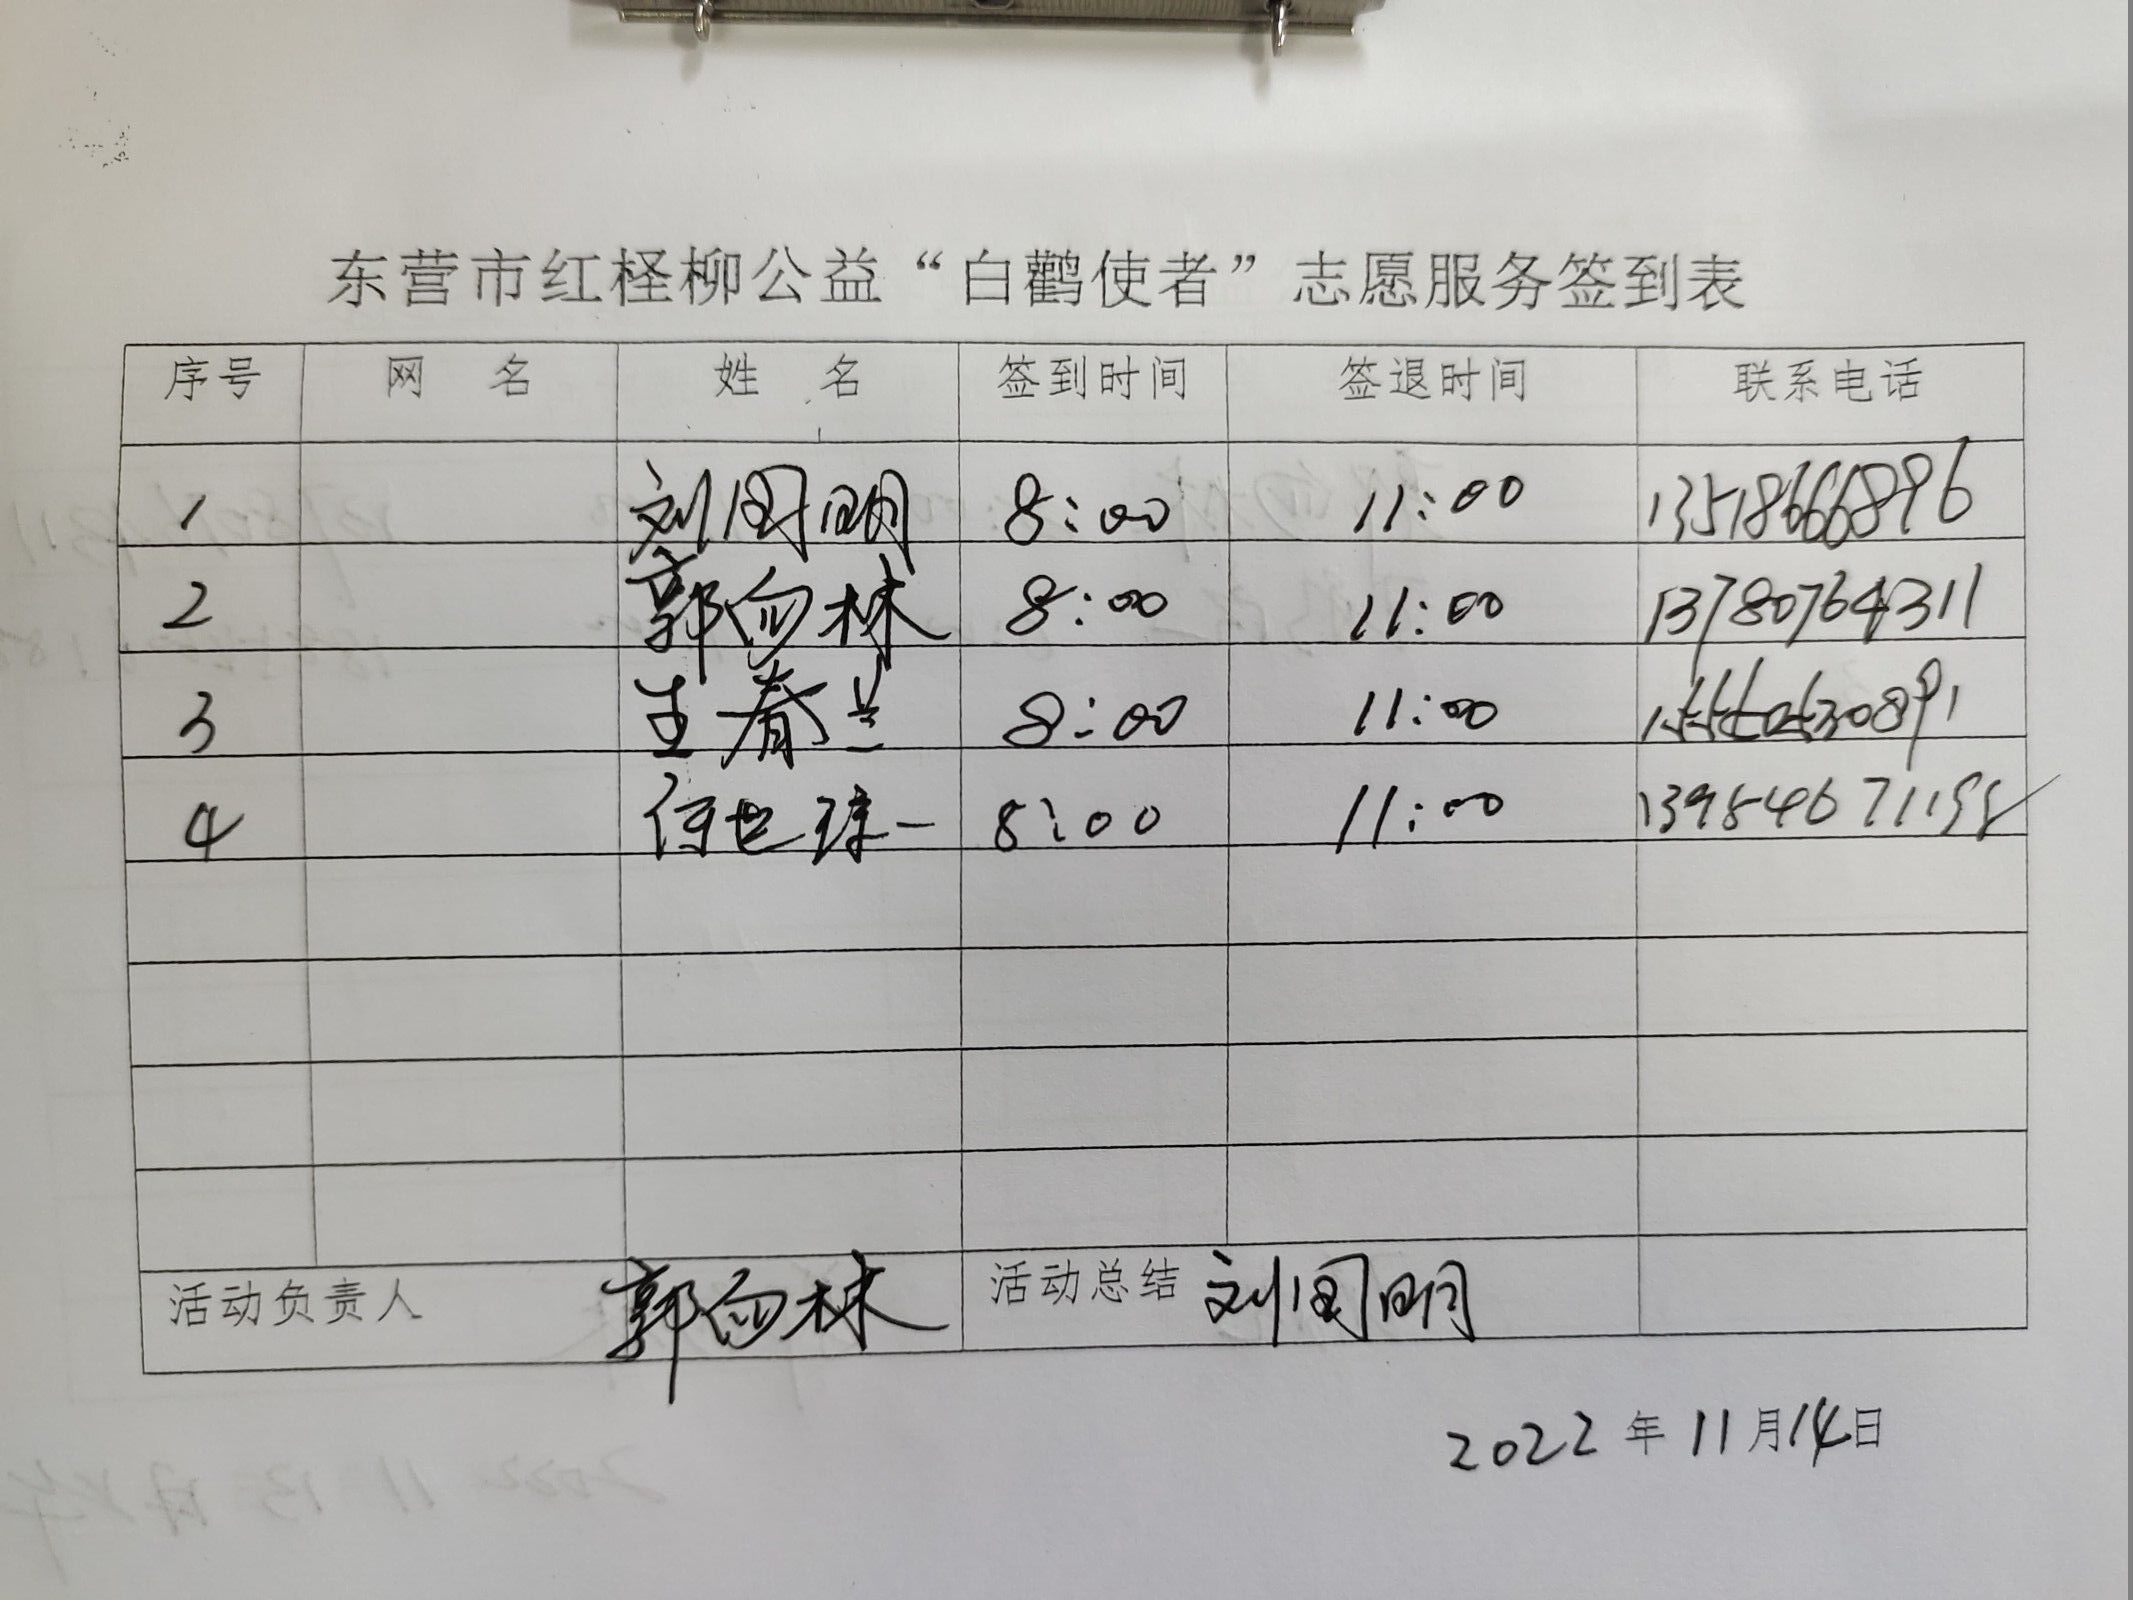 东营市红柽柳公益“白鹳使者”志愿服务签到表
序号 网 名 姓 名 签到时间 签退时间 联系电话
1 刘国明 8:00 11:00 13518666896
2 郭向林 8:00 11:00 13780764311
3 王春兰 8:00 11:00
4 8:00 11:00
活动负责人 郭向林 活动总结 刘国明
2022 年 11 月 14 日